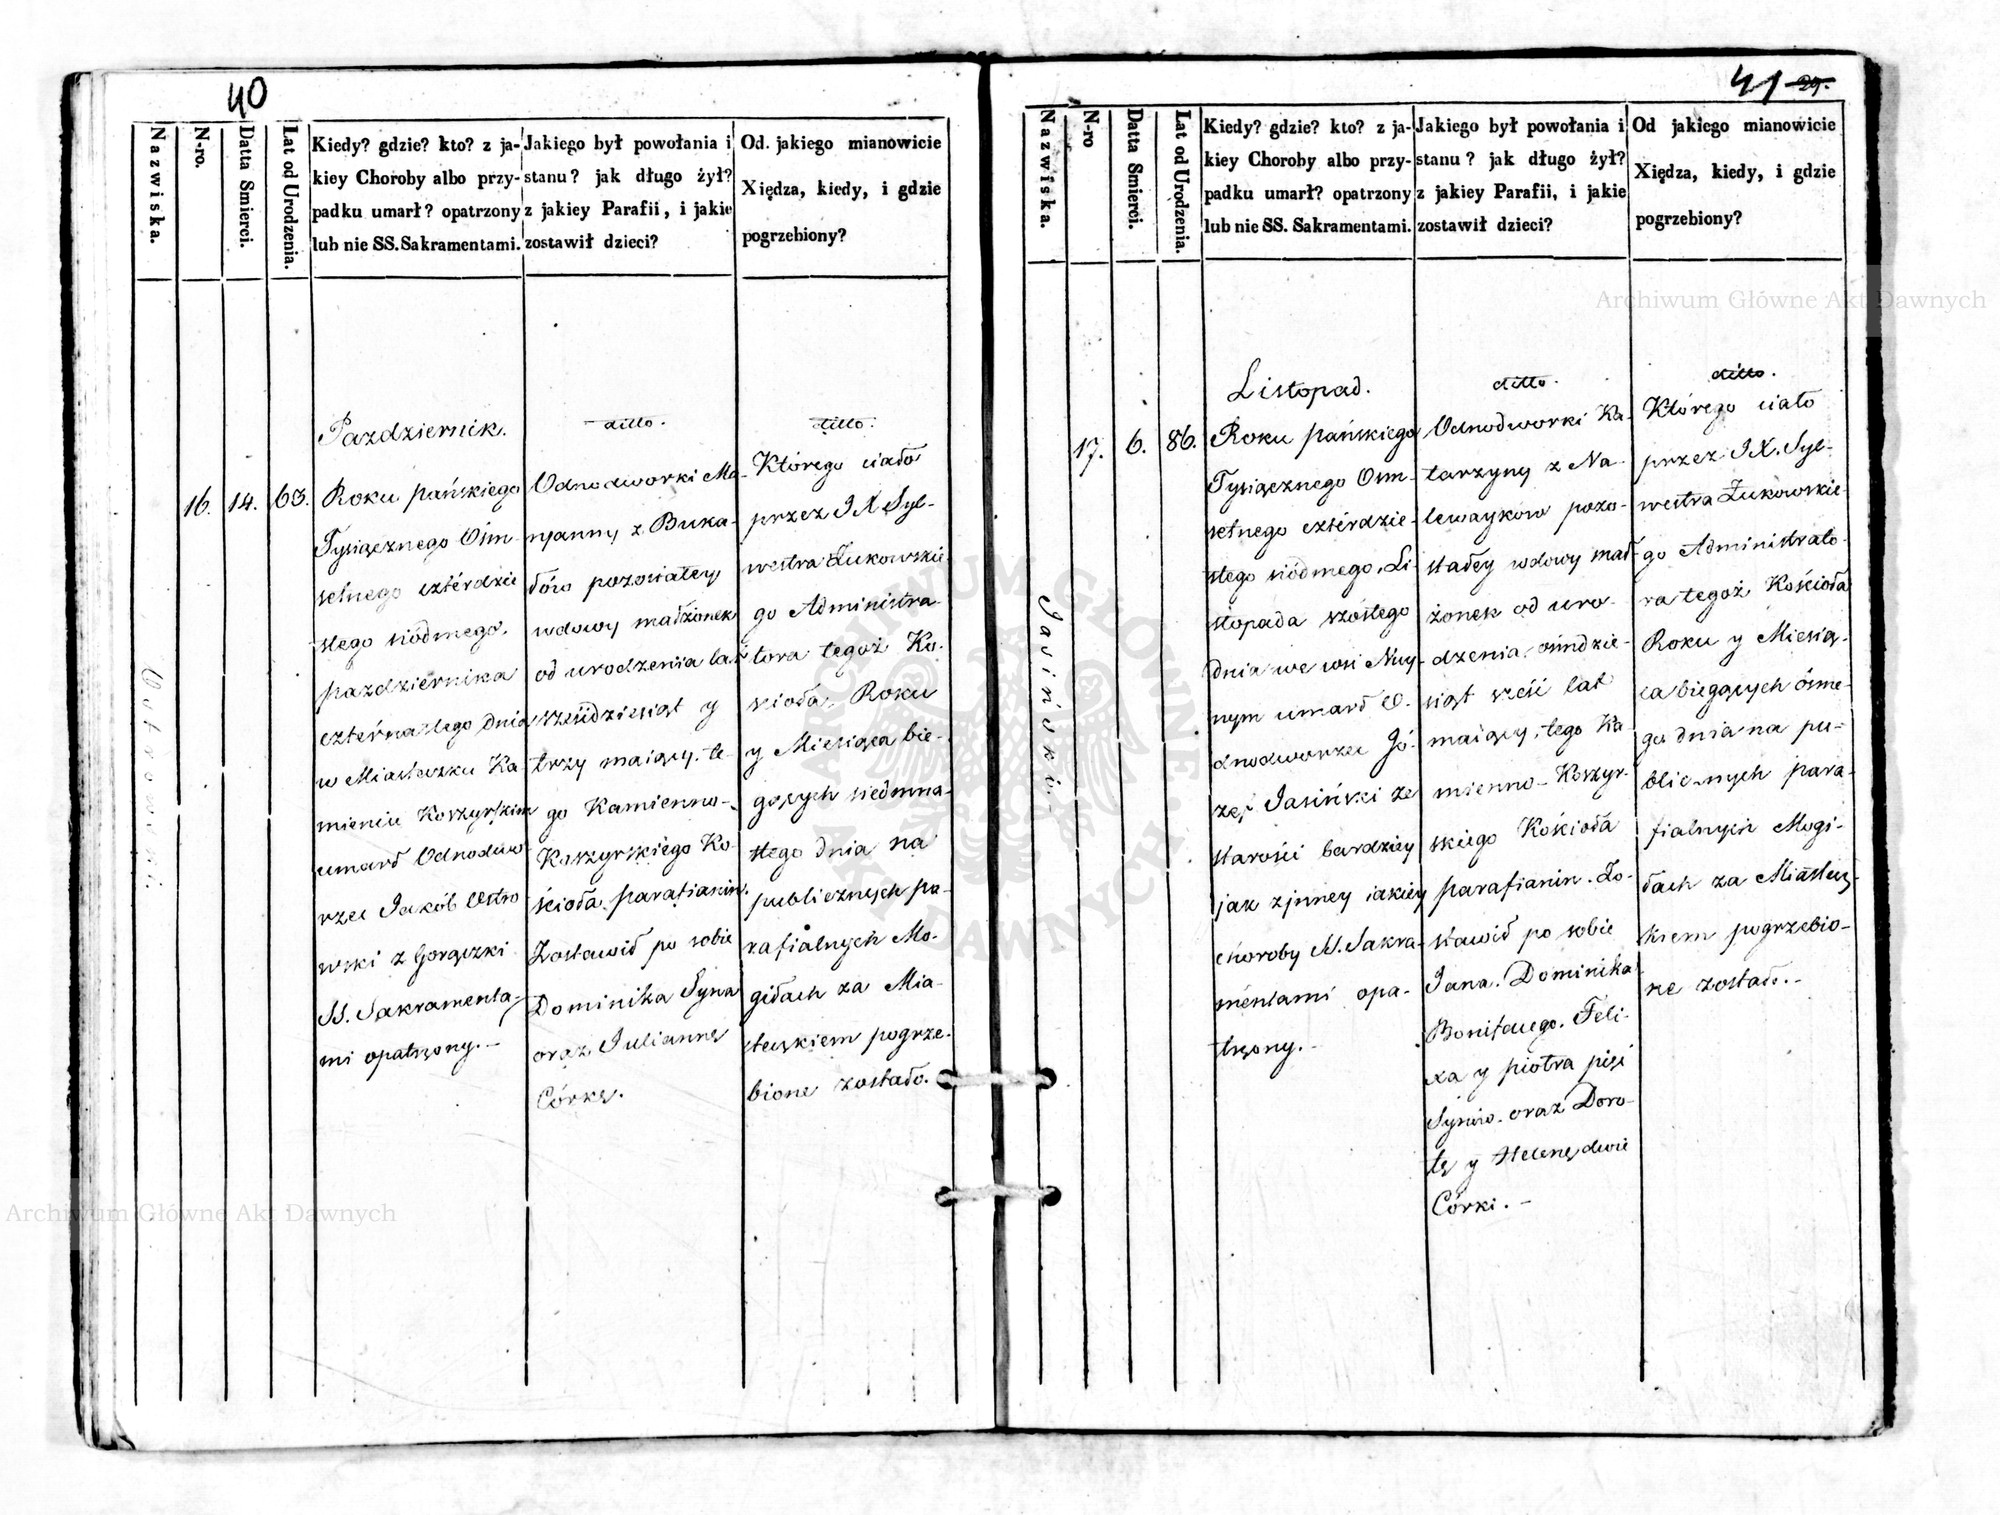 40
Nazwiska.
N-ro.
Datta Smierci.
Lat od Urodzenia.
Kiedy? gdzie? kto? z ja-
kiey Choroby albo przy-
padku umarł? opatrzony
lub nie SS. Sakramentami.
Jakiego był powołania i
stanu? jak długo żył?
z jakiey Parafii, i jakie
zostawił dzieci?
Od. jakiego mianowicie
Xiędza, kiedy, i gdzie
pogrzebiony?
Ostrowski.
16.
14.
63.
Pazdziernik.
Roku pańskiego
Tysiącznego Ośm-
setnego cztérdzie
stego siódmego.
pazdziernika
czternastego dnia
w Miasteczku Ka
mieniu Koszyrskim
umarł Odnodwo
rzec Jakób Ostro
wski z Gorączki
SS. Sakramenta-
mi opatrzony. -
ditto.
Odnodworki Ma-
ryanny z Buka-
łów pozostałey
wdowy małżonek
od urodzenia lat
sześćdziesiąt y
trzy maiący. te-
go Kamienno-
Koszyrskiego Ko-
ścioła parafianin.
Zostawił po sobie
Dominika Syna
oraz Juliannę
Córkę.
ditto.
Którego ciało
przez J X Syl-
westra Żukowskie
go Administra-
tora tegoż Ko-
ścioła Roku
y Miesiąca bie-
gących siedmna-
stego dnia na
publicznych pa-
rafialnych Mo-
giłach za Mia-
steczkiem pogrze-
bione zostało.
41
29.
Nazwiska.
N-ro
Datta Smierci.
Lat od Urodzenia.
Kiedy? gdzie? kto? z ja-
kiey Choroby albo przy-
padku umarł? opatrzony
lub nie SS. Sakramentami.
Jakiego był powołania i
stanu? jak długo żył?
z jakiey Parafii, i jakie
zostawił dzieci?
Od jakiego mianowicie
Xiędza, kiedy, i gdzie
pogrzebiony?
Jasiński.
17.
6.
86.
Listopad.
Roku pańskiego
Tysiącznego Ośm-
setnego cztérdzie-
stego siódmego. Li-
stopada szóstego
dnia we wsi Nuy-
nym umarł O-
dnodworzec Jó-
zef Jasiński ze
starości bardziey
jak zjnney jakiey
choroby SS. Sakra-
mentami opa-
trzony. -
ditto.
Odnodworki Ka-
tarzyny z Na-
lewayków pozo-
stałey wdowy mał-
żonek od uro-
dzenia ośmdzie-
siąt sześć lat
maiący, tego Ka
mienno-Koszyr-
skiego Kościoła
parafianin. Zo-
stawił po sobie
Jana. Dominika
Bonifacego. Feli-
xa y piotra pięć
Synów. oraz Doro-
tę y Helenę dwie
Córki. -
ditto.
Którego ciało
przez J X. Syl-
westra Żukowskie-
go Administrato-
ra tegoż Kościoła
Roku y Miesią-
ca biegących ósme-
go dnia na pu-
blicznych para-
fialnych Mogi-
łach za Miastecz-
kiem pogrzebio-
ne zostało. -
Archiwum Główne Akt Dawnych
Archiwum Główne Akt Dawnych
ARCHIWUM GŁÓWNE AKT DAWNYCH